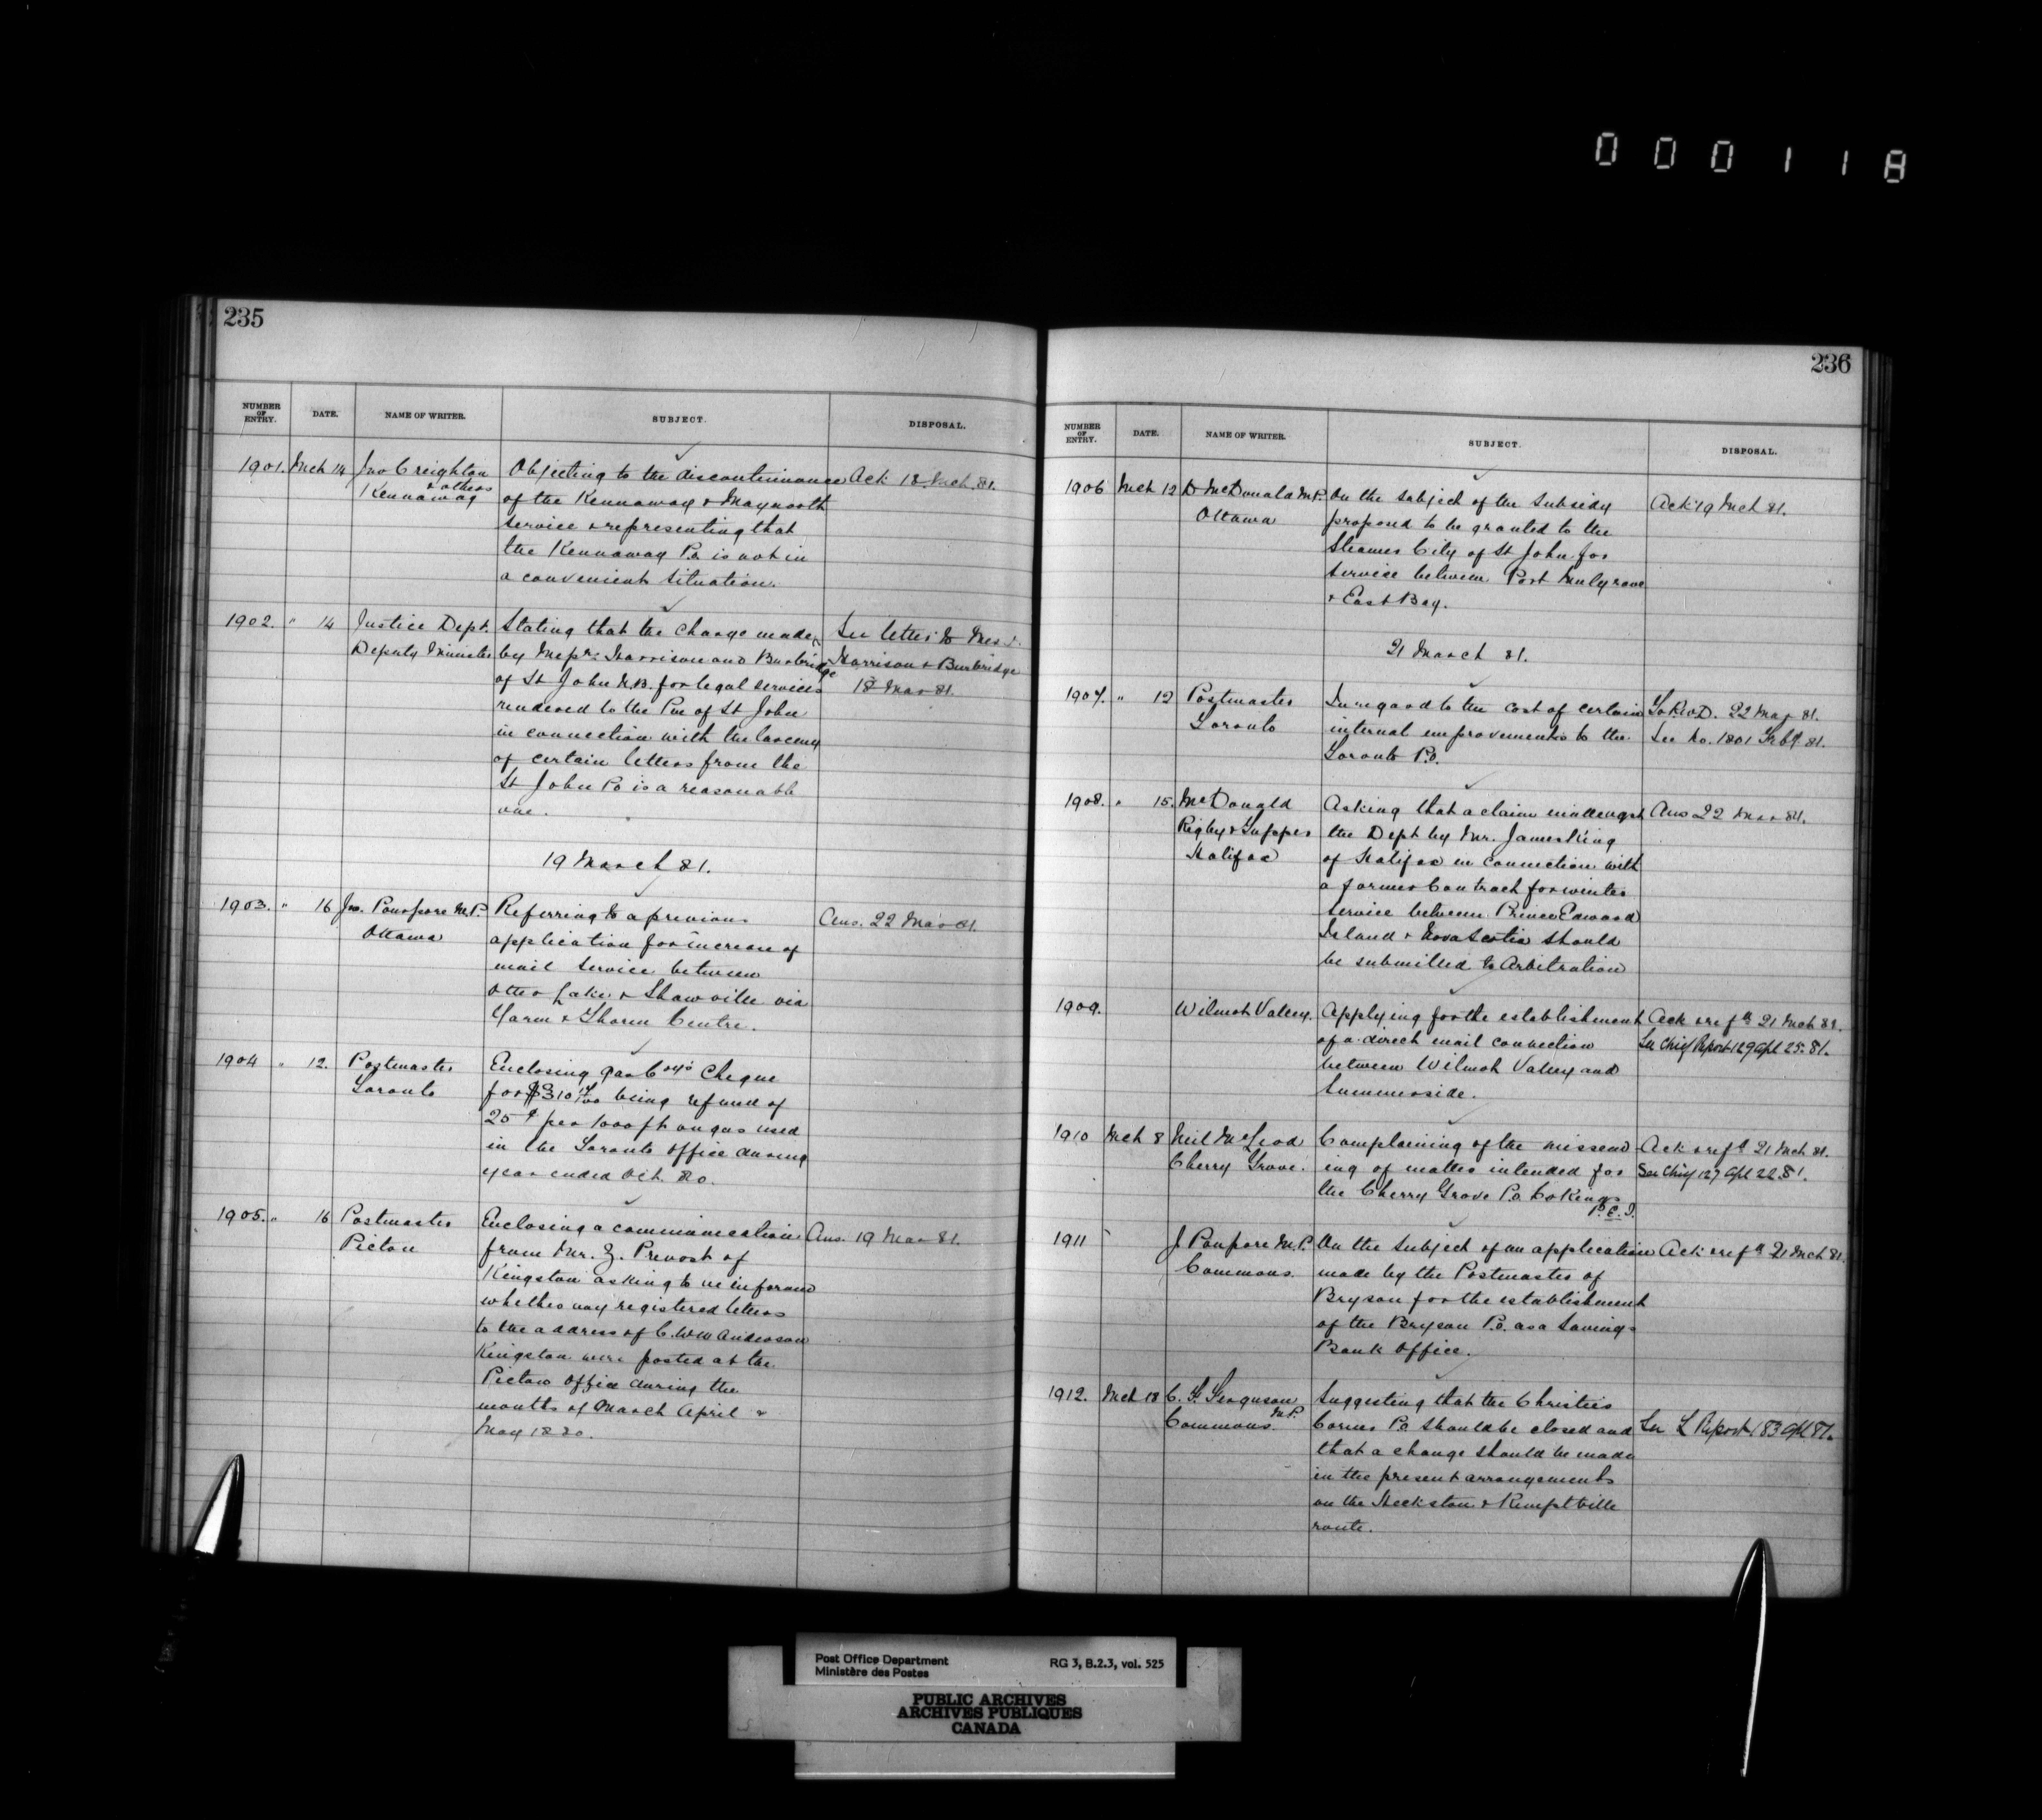 000118
235
NUMBER OF ENTRY. DATE. NAME OF WRITER. SUBJECT. DISPOSAL.
1901. Mch 14 Jno Creighton Objecting to the discontinuance Ack 18 Mch 81.
& others
Kennaway of the Kennaway & Maynooth
service & representing that
the Kennaway P.o. is not in
a convenient situation.
1902. " 14 Justice Dept. Stating that the charge made See letter to Mess
Deputy Minister by Messrs Harrison and Burbridge Harrison & Burbridge
of St John N.B. for legal services 18 Mar 81.
rendered to the P.m of St John
in connection with the larceny
of certain letters from the
St John Po is a reasonable
one.
19 March 81.
1903. " 16 Jno. Poupore M.P. Referring to a previous Ans. 22 Mar 81
Ottawa application for increase of
mail service between
Otter Lake & Shawville via
Yarm & Thorne Centre.
1904 " 12. Postmaster Enclosing Gas Coy's Cheque
Toronto for $310 being refund of
25¢ per 1000 ft on gas used
in the Toronto office during
year ended Oct. 80.
1905. " 16 Postmaster Enclosing a communication Ans. 19 Mar 81.
Picton from Mr. Z. Prevost of
Kingston asking to be informed
whether any registered letters
to the address of C. Wm Anderson
Kingston were posted at the
Picton office during the
months of March April &
May 1880.
236
NUMBER OF ENTRY. DATE. NAME OF WRITER. SUBJECT. DISPOSAL.
1906 Mch 12 D McDonald M.P. On the subject of the subsidy Ack 19 Mch 81.
Ottawa proposed to be granted to the
Steamer City of St John for
service between Port Mulgrave
& East Bay.
21 March 81.
1907. " 12 Postmaster In regard to the cost of certain To P.W.D. 22 Mar 81.
Toronto internal improvements to the See No. 1801 Feby 81.
Toronto P.o.
1908. " 15. McDonald Asking that a claim made agst Ans 22 Mar 81.
Rigby & Tupper the Dept by Mr. James King
Halifax of Halifax in connection with
a former contract for winter
service between Prince Edward
Island & Nova Scotia should
be submitted to Arbitration
1909. Wilmot Valley. Applying for the establishment Ack & refd 21 Mch 81.
of a direct mail connection See Chief Report 129 Apl 25. 81.
between Wilmot Valley and
Summerside.
1910 Mch 8 Neil McLeod Complaining of the missend Ack & refd 21 Mch 81.
Cherry Grove. ing of matter intended for See Chief 127 Apl 22. 81.
the Cherry Grove Po. Co Kings
P.E.I.
1911 J Poupore M.P. On the subject of an application Ack & refd 21 Mch 81.
Commons. made by the Postmaster of
Bryson for the establishment
of the Bryson P.o. as a Savings
Bank Office.
1912. Mch 18 C. F. Ferguson Suggesting that the Christies
M.P.
Commons. Corners Po. should be closed and See L Report 183 Apl 81.
that a change should be made
in the present arrangements
on the Heckston & Kemptville
route.
Post Office Department
Ministère des Postes
RG 3, B.2.3, vol. 525
PUBLIC ARCHIVES
ARCHIVES PUBLIQUES
CANADA